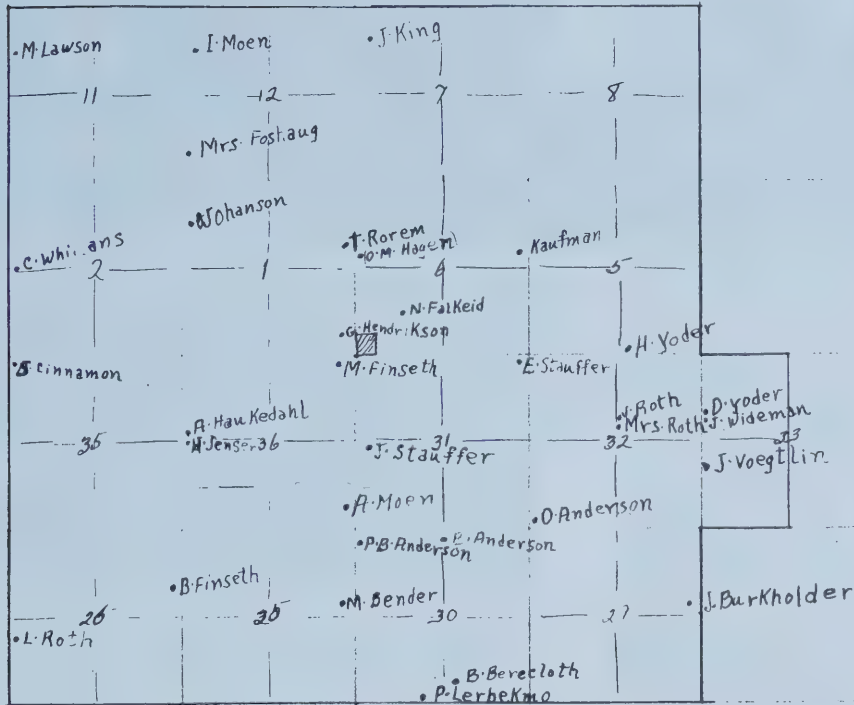 M. Lawson
I. Moen
J. King
11
12
7
8
Mrs. Fosthaug
Wohanson
C. Whi
2
1
T. Rorem
(O. M. Hagen)
6
Kaufman
5
N. Falkeid
G. Hendrikson
H. Yoder
Cinnamon
M. Finseth
E. Stauffer
A. Haukedahl
Jensen
35
36
J. Stauffer
31
Roth
Mrs. Roth
32
D. Yoder
J. Wideman
33
J. Voegtlin
A. Moen
O. Anderson
P. B. Anderson
Anderson
B. Finseth
M. Bender
J. Burkholder
26
30
L. Roth
B. Berecloth
P. Lerbekmo